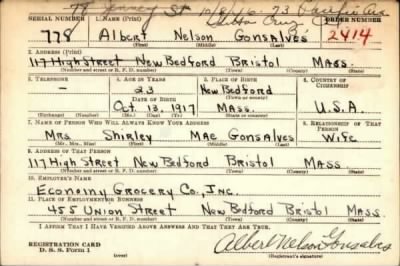 78 Jenney St 10/8/46 - 73 Pacific Ave
Santa Cruz
SERIAL NUMBER 1. NAME (Print) ORDER NUMBER
778 Albert Nelson Gonsalves 2414
(First) (Middle) (Last)
2. ADDRESS (Print)
117 High Street New Bedford Bristol Mass.
(Number and street or R. F. D. number) (Town) (County) (State)
3. TELEPHONE 4. AGE IN YEARS 5. PLACE OF BIRTH 6. COUNTRY OF CITIZENSHIP
- 23 New Bedford
(Town or county)
DATE OF BIRTH
Oct. 13, 1917 Mass. U.S.A.
(Exchange) (Number) (Mo.) (Day) (Yr.) (State or country)
7. NAME OF PERSON WHO WILL ALWAYS KNOW YOUR ADDRESS 8. RELATIONSHIP OF THAT PERSON
Mrs Shirley Mae Gonsalves Wife
(Mr., Mrs., Miss) (First) (Middle) (Last)
9. ADDRESS OF THAT PERSON
117 High Street New Bedford Bristol Mass
(Number and street or R. F. D. number) (Town) (County) (State)
10. EMPLOYER'S NAME
Economy Grocery Co., Inc.
11. PLACE OF EMPLOYMENT OR BUSINESS
455 Union Street New Bedford Bristol Mass.
(Number and street or R. F. D. number) (Town) (County) (State)
I AFFIRM THAT I HAVE VERIFIED ABOVE ANSWERS AND THAT THEY ARE TRUE.
REGISTRATION CARD
D. S. S. Form 1
Albert Nelson Gonsalves
(Registrant's signature)